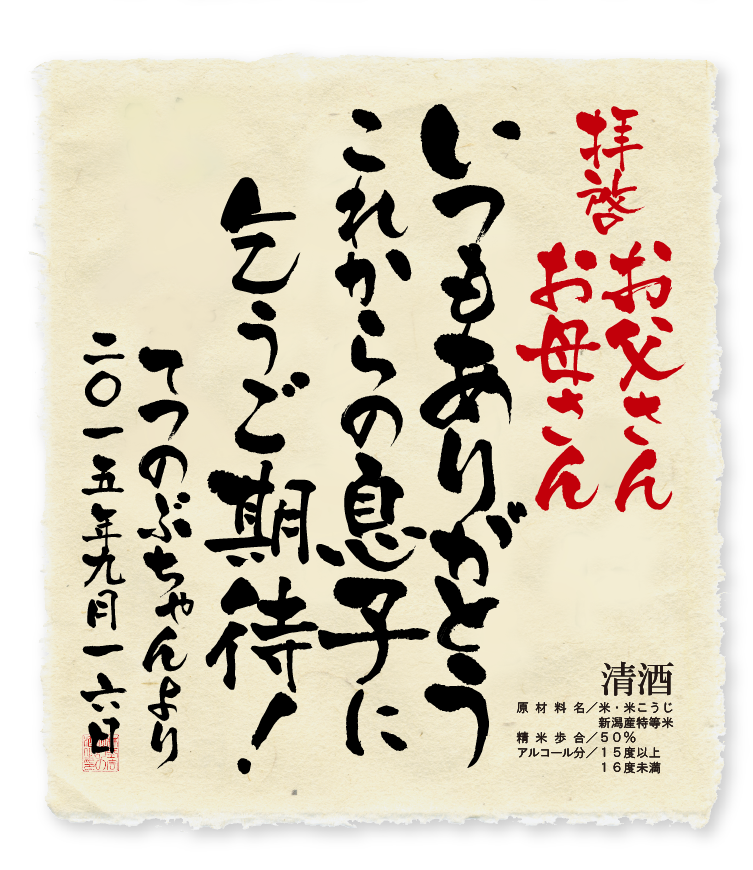 拝啓
お父さん
お母さん
いつもありがとう
これからの息子に
乞うご期待！
てつのぶちゃんより
二〇一五年九月一六日
清酒
原材料名／米・米こうじ
新潟産特等米
精米歩合／５０％
アルコール分／１５度以上
１６度未満